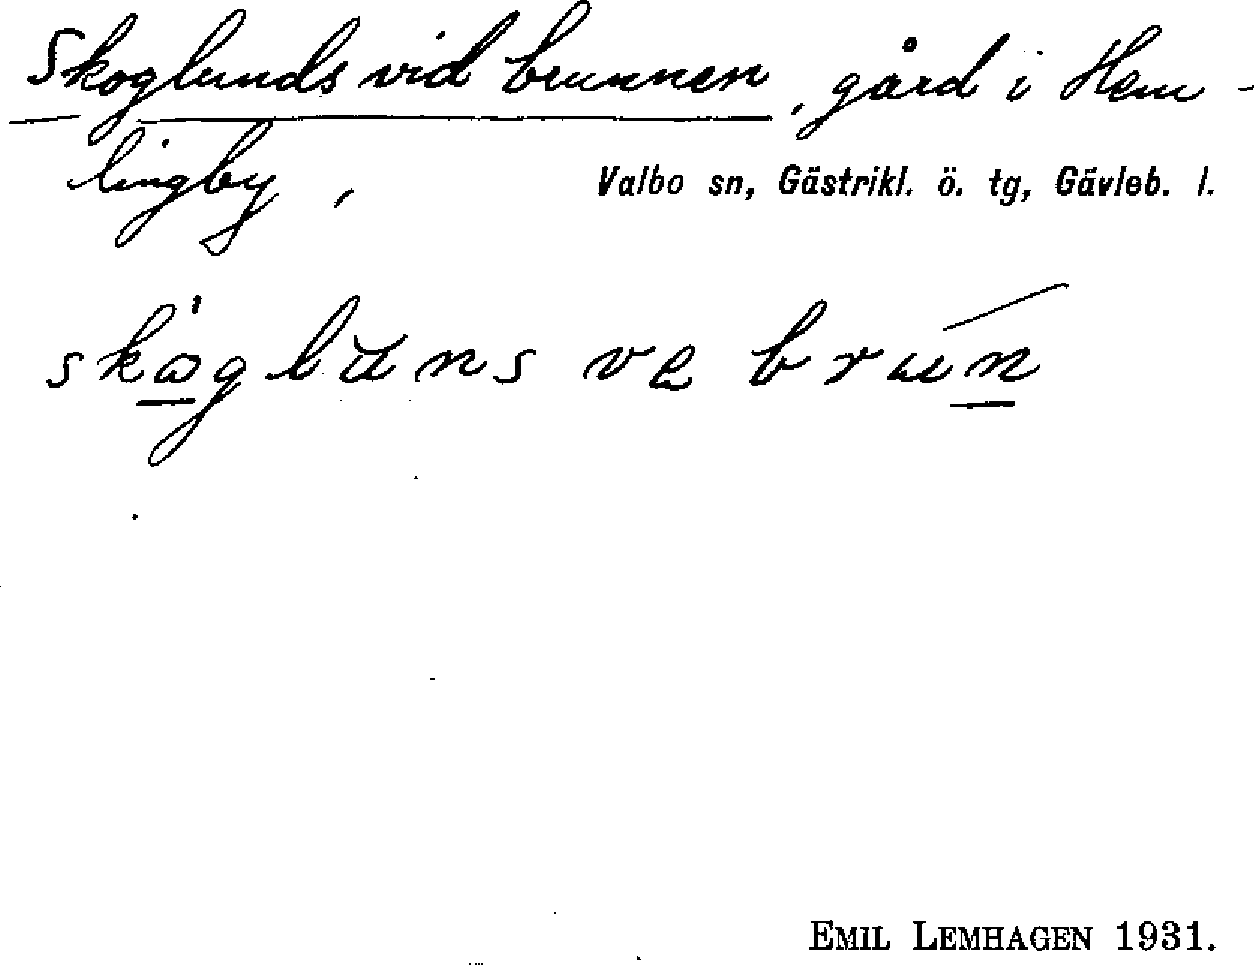 Skoglunds vid brunnen, gård i Hem-
lingby,
Valbo sn, Gästrikl. ö. tg, Gävleb. l.
skòglu̇ns ve brún
EMIL LEMHAGEN 1931.